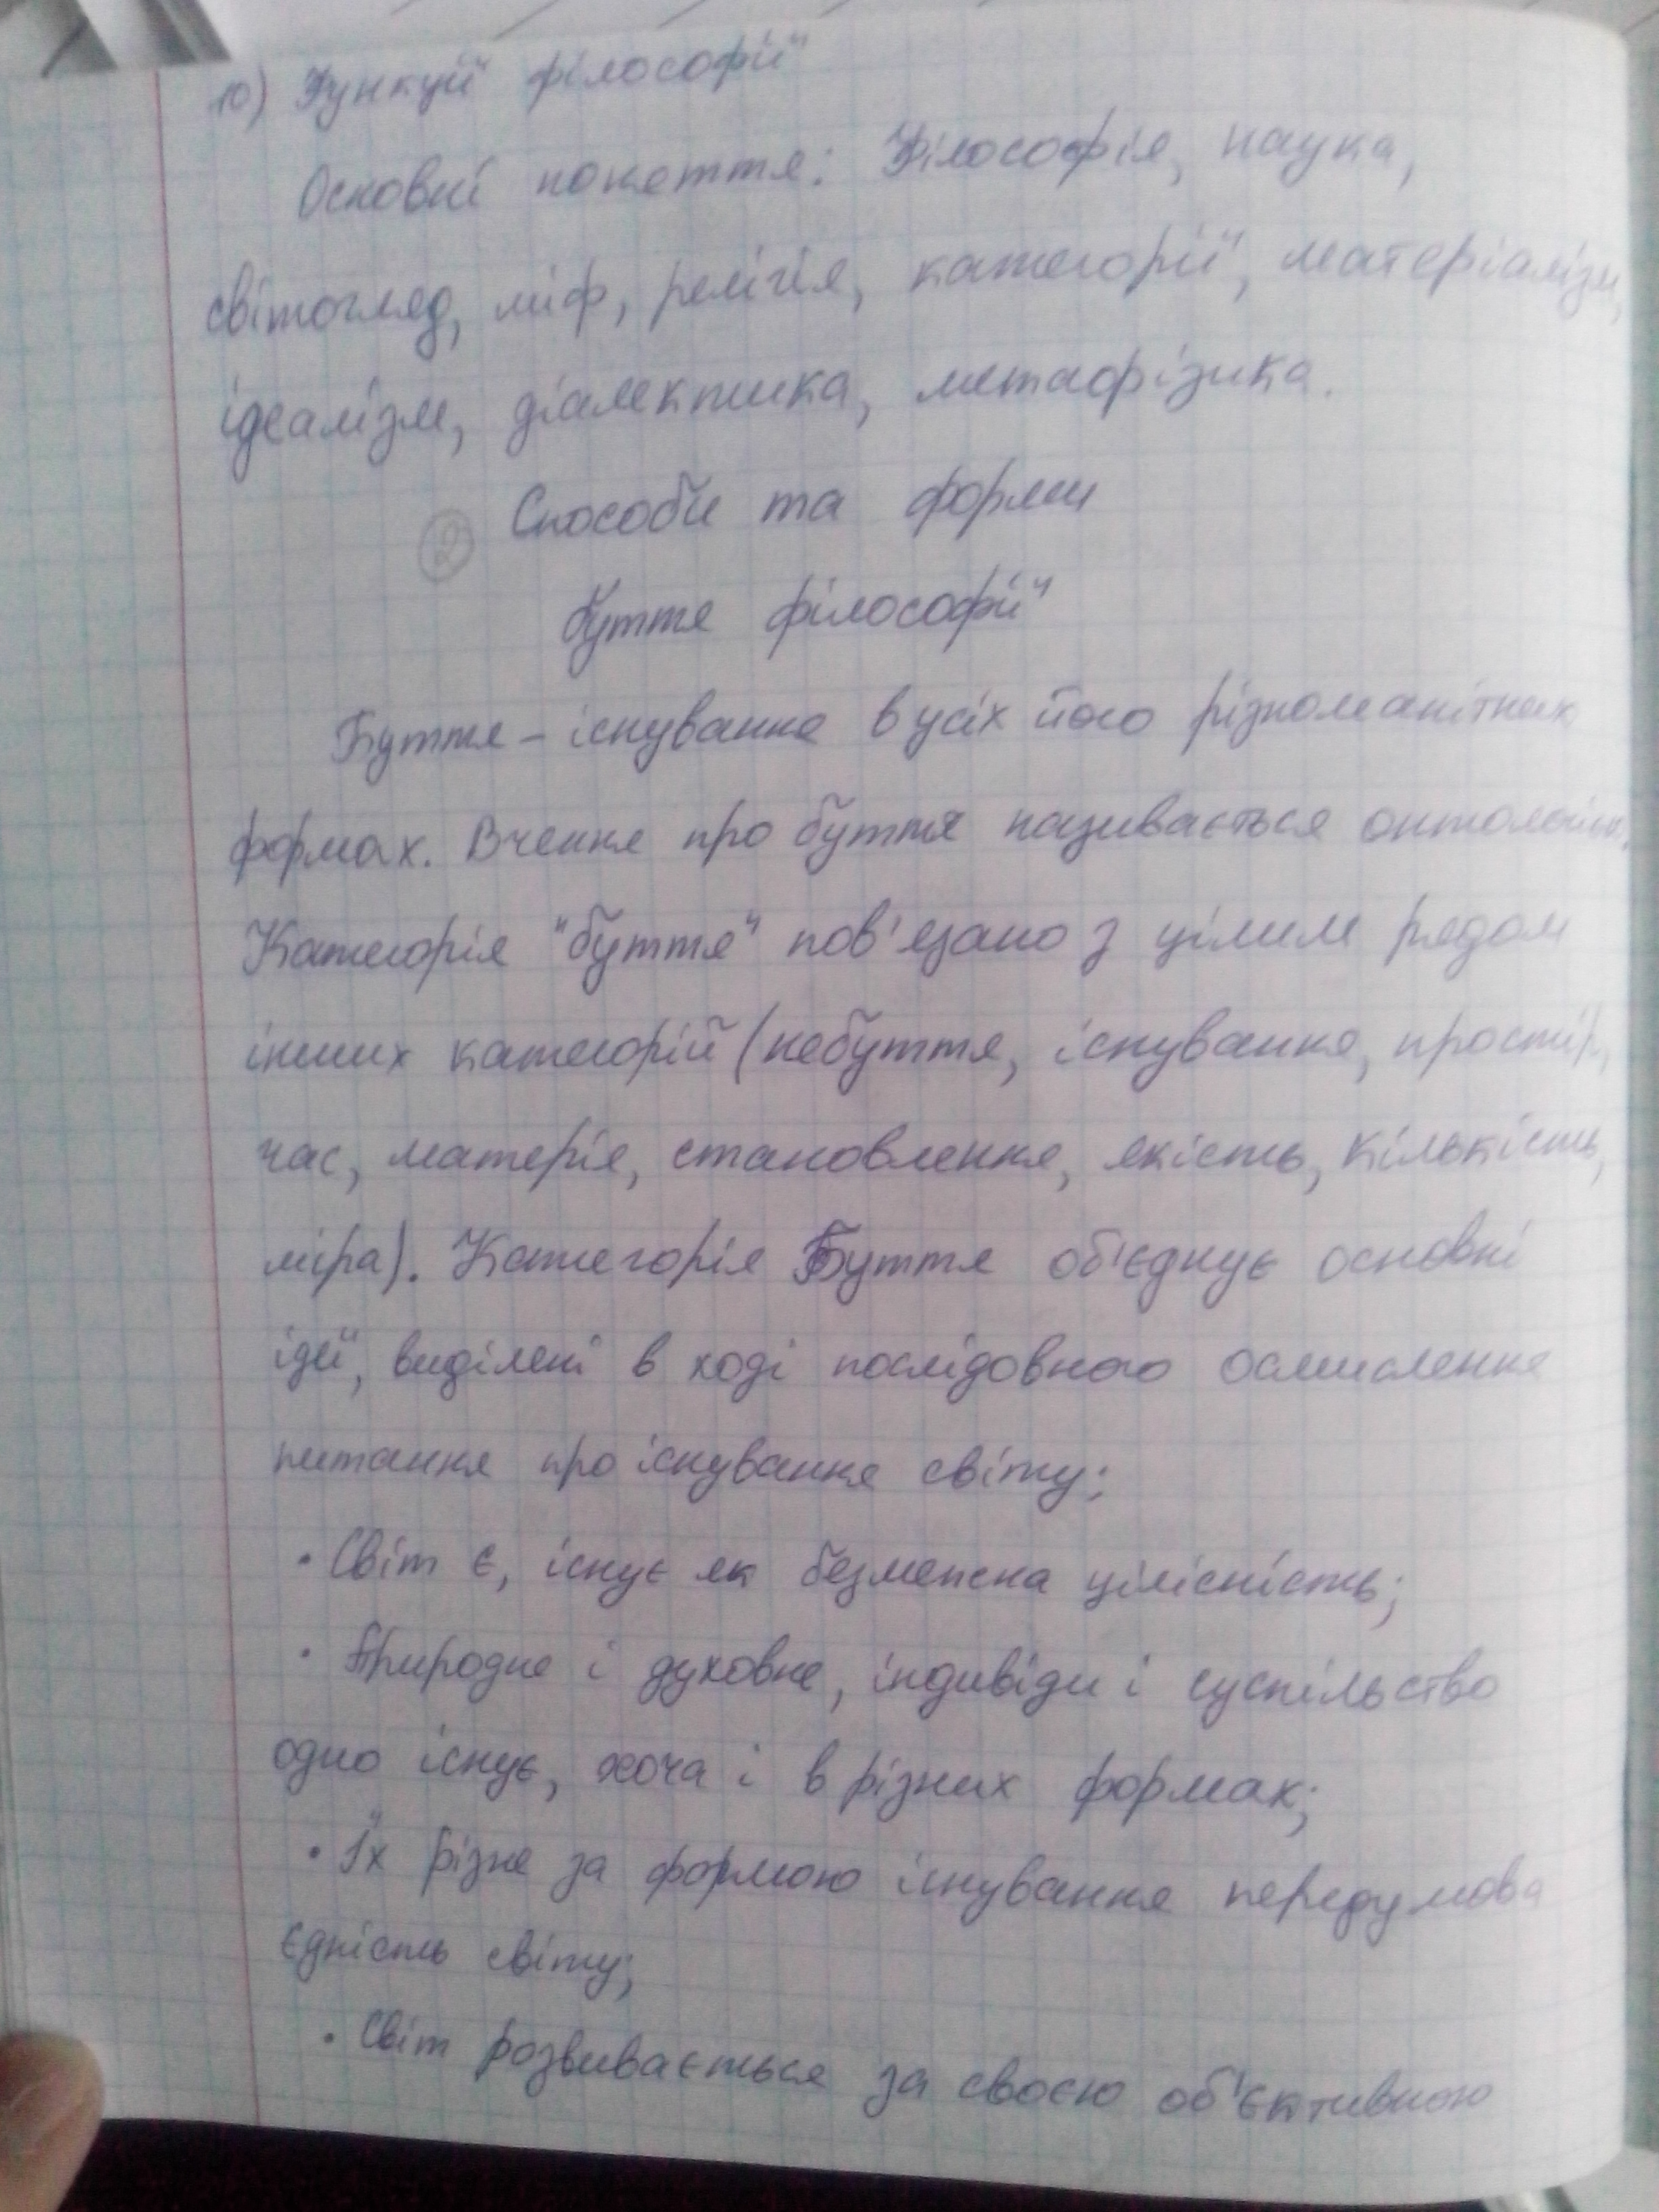 10) Функції філософії
Основні поняття: Філософія, наука,
світогляд, міф, релігія, категорії, матеріалізм,
ідеалізм, діалектика, метафізика.
2 Способи та форми
буття філософії
Буття – існування в усіх його різноманітних
формах. Вчення про буття називається
Категорія "буття" пов'язано з цілим рядом
інших категорій (небуття, існування, простір,
час, матерія, становлення, якість, кількість,
міра). Категорія Буття об'єднує основні
ідеї, виділені в ході послідовного осмислення
питання про існування світу:
• Світ є, існує як безмежна цілісність;
• Природне і духовне, індивіди і суспільство
одно існує, хоча і в різних формах;
• Їх різне за формою існування передумова
єдність світу;
• Світ розвивається за своєю об'єктивною